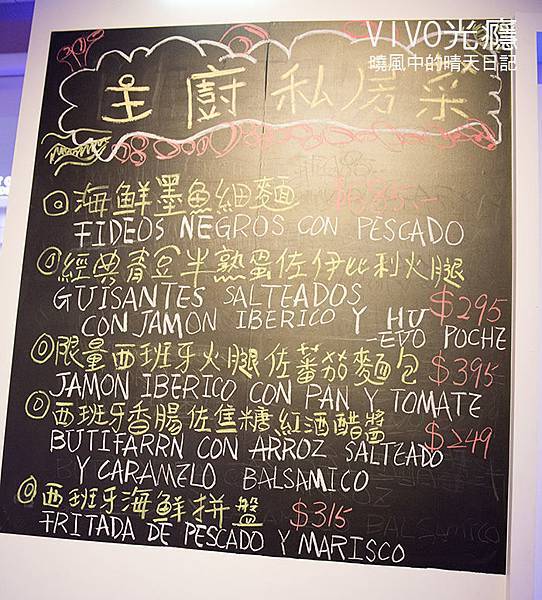 VIVO光癮
曉風中的晴天日記
主廚私房菜
海鮮墨魚細麵
FIDEOS NEGROS CON PESCADO
經典青豆半熟蛋佐伊比利火腿
GUISANTES SALTEADOS $295
CON JAMON IBERICO Y HU
-EVO POCHE
限量西班牙火腿佐蕃茄麵包 $395
JAMON IBERICO CON PAN Y TOMATE
西班牙香腸佐焦糖紅酒醋醬 $249
BUTIFARRN CON ARROZ SALTEADO
Y CARAMELO BALSAMICO
西班牙海鮮拼盤 $315
FRITADA DE PESCADO Y MARISCO